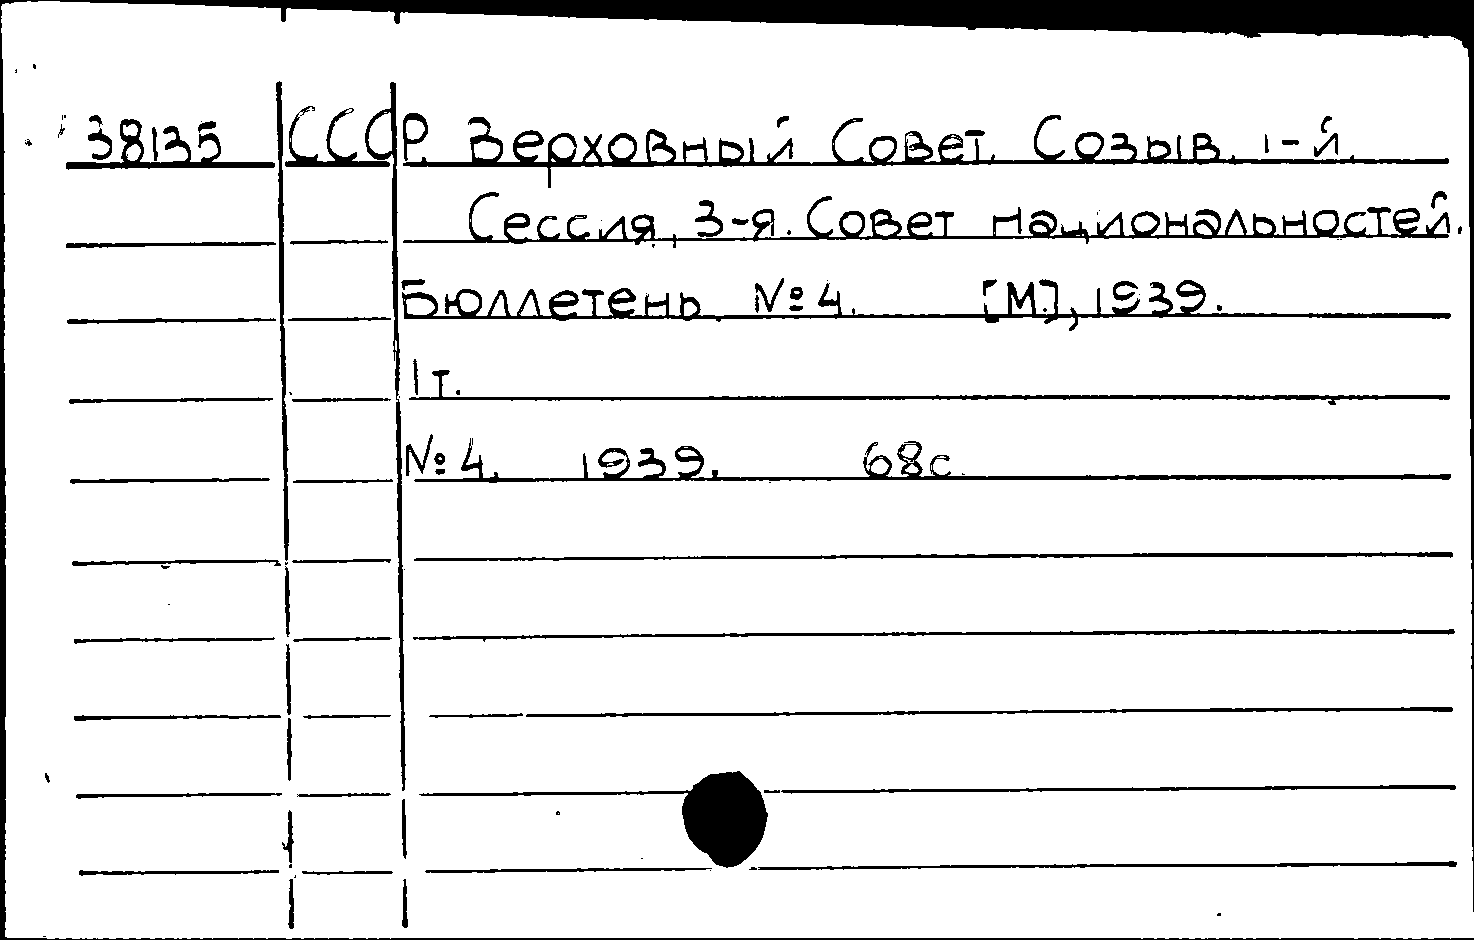 38135 СССР. Верховный Совет. Созыв. 1-й.
Сессия, 3-я. Совет национальностей.
Бюллетень №4. [М.], 1939.
1 т.
№4. 1939. 68с.